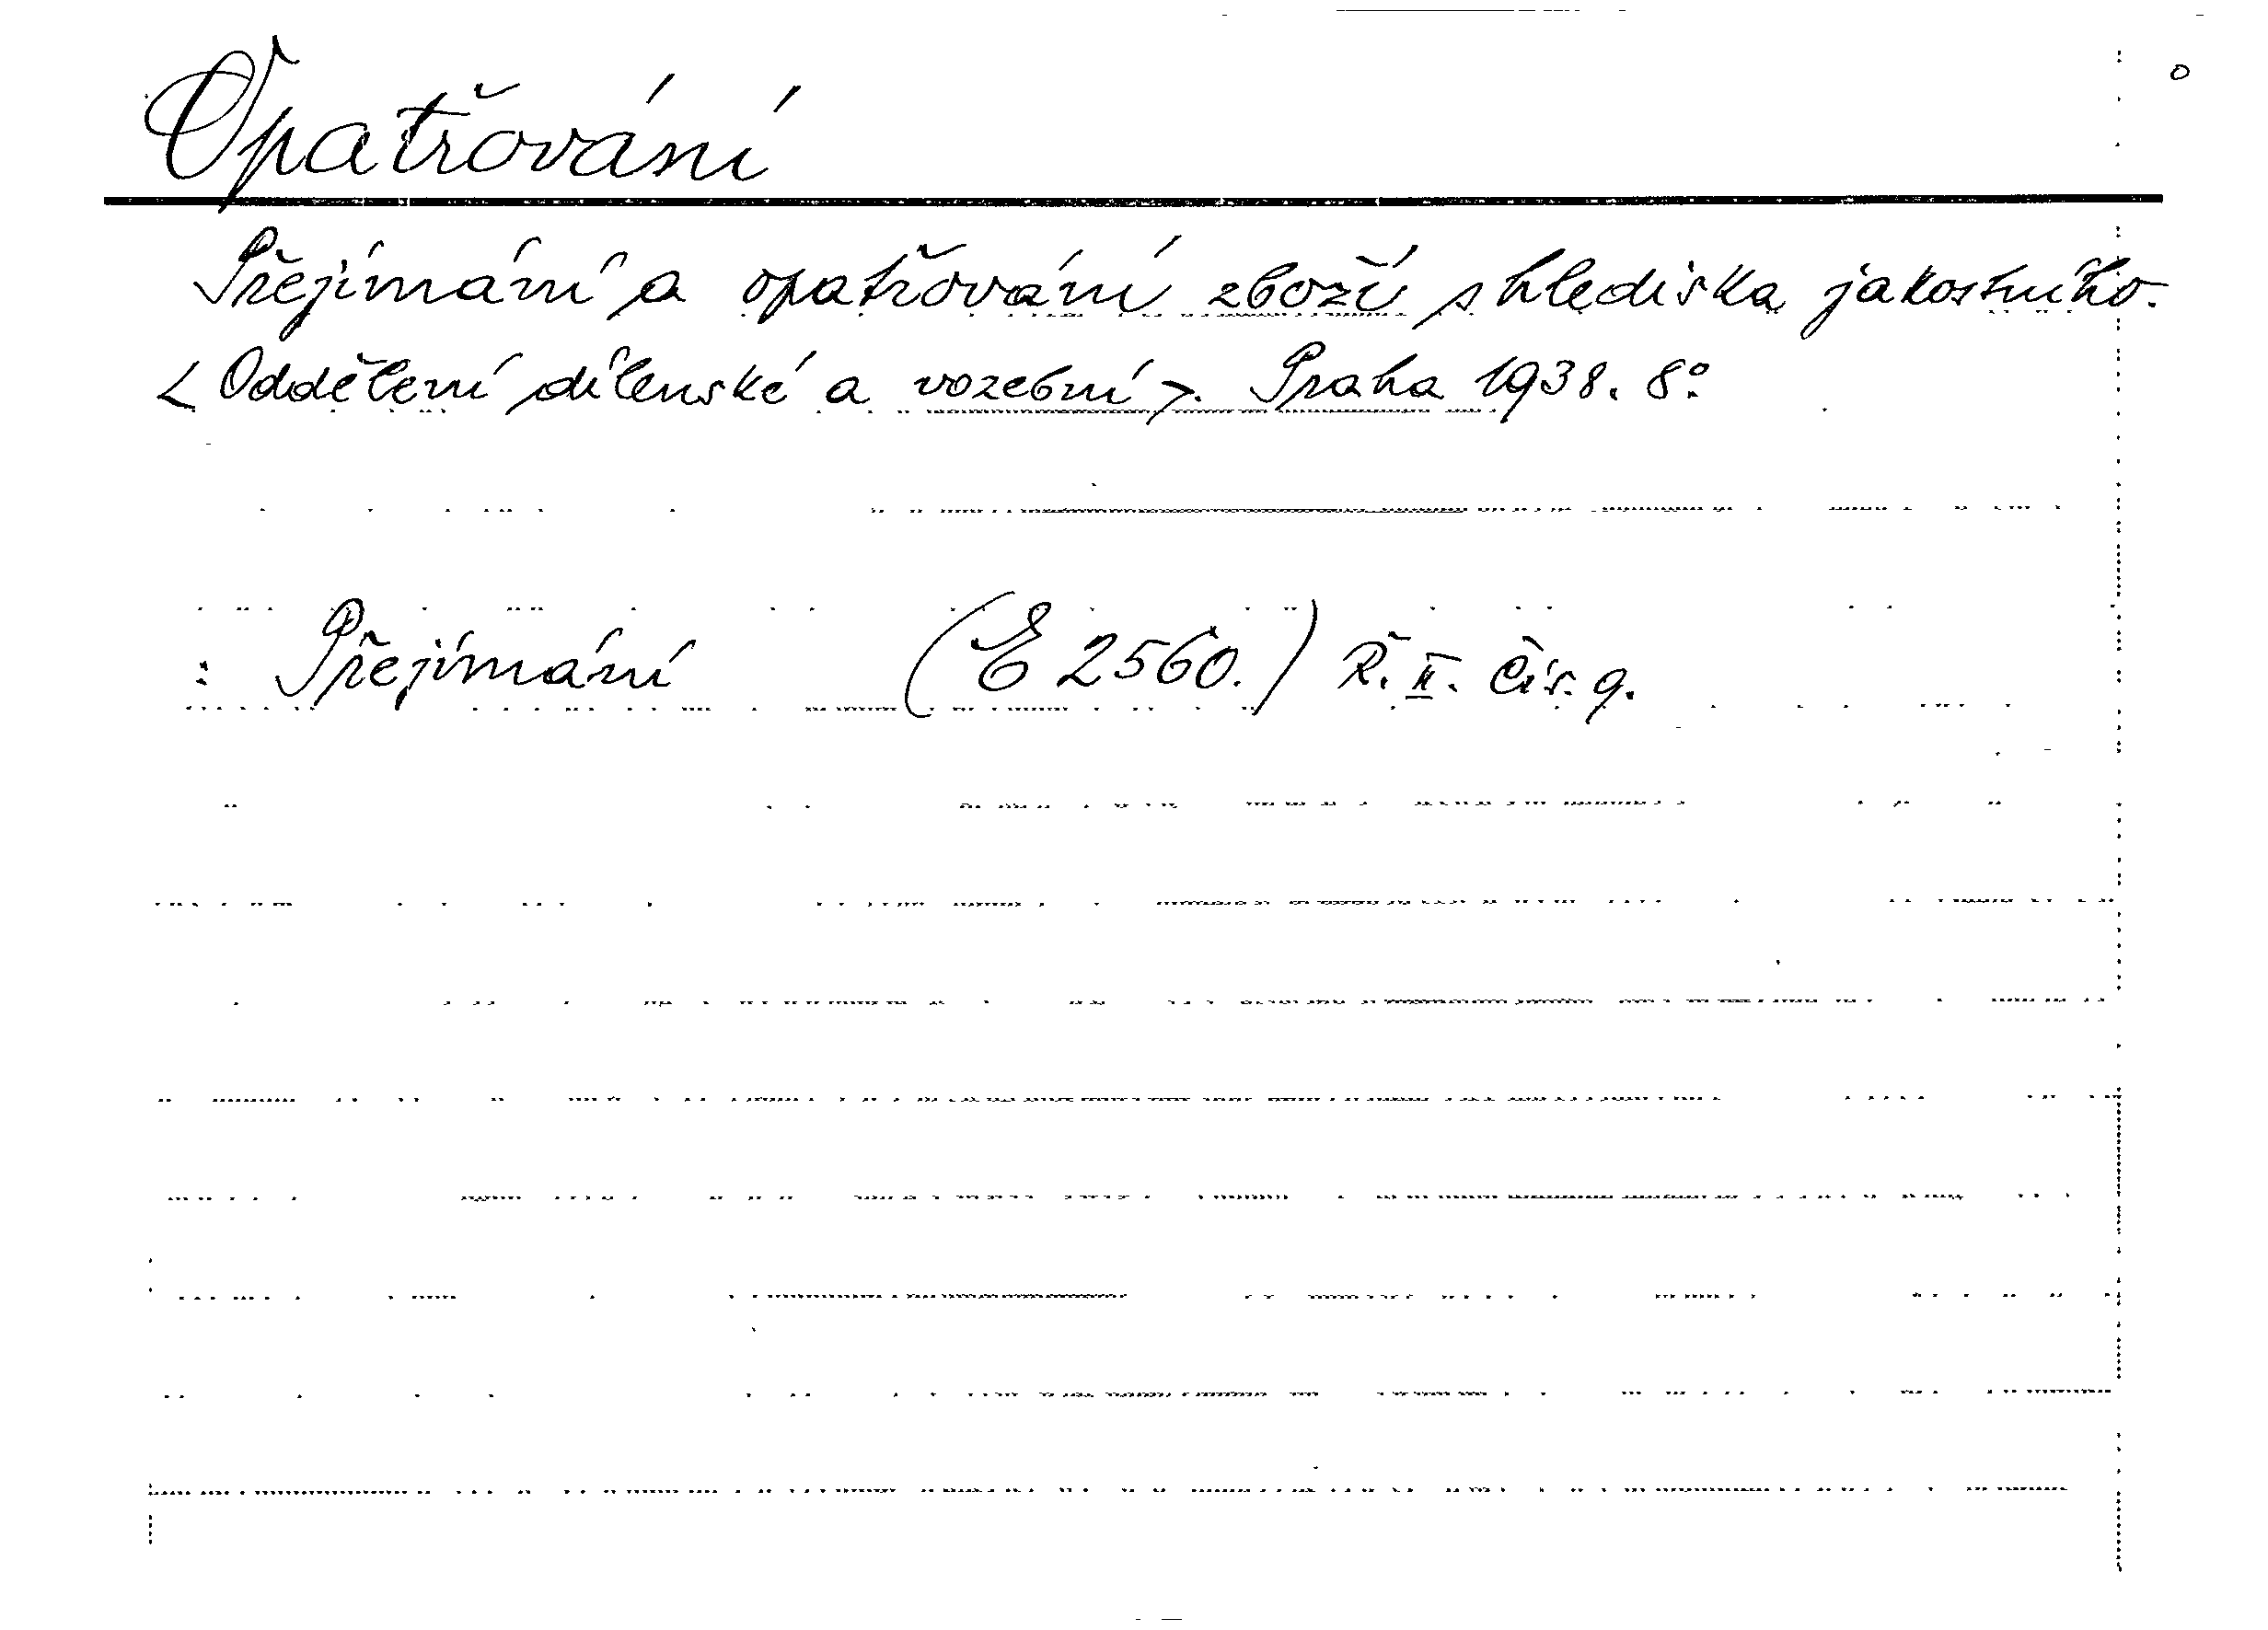 Opatřování
Přejímání a opatřování zboží s hlediska jakostního.
< Oddělení dílenské a vozební >. Praha 1938. 8°.
: Přejímání (E 2560.) Ř. II. Čís. 9.